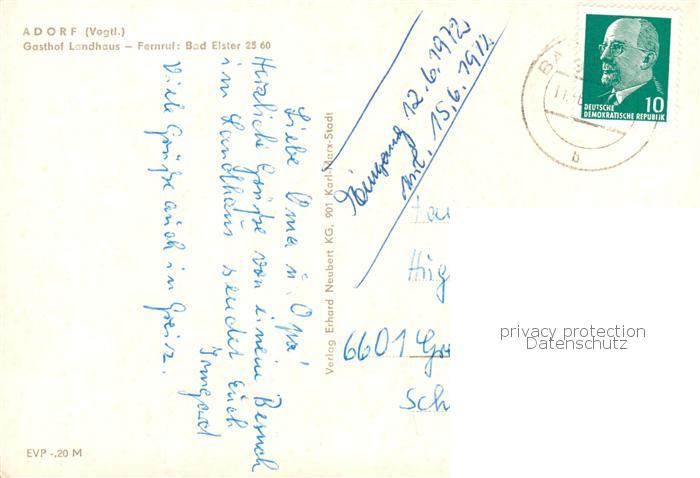 ADORF (Vogtl.)
Gasthof Landhaus – Fernruf: Bad Elster 25 60
Liebe Oma u. Opa!
Herzliche Grüße von einem Besuch
im Landhaus sendet Euch
Irmgard
Viele Grüße auch in Greiz.
Verlag Erhard Neubert KG, 901 Karl-Marx-Stadt
Eingang 12.6.1972
15.6.1972
DEUTSCHE
DEMOKRATISCHE REPUBLIK
10
b
6601
Sch
privacy protection
Datenschutz
EVP -,20 M